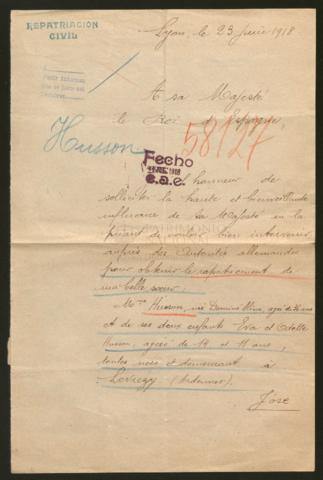 REPATRIACION
CIVIL
Lyon, le 23 Juin 1918
A sa Majesté
le Roi d'Espagne,
Husson
58127
Fecho
1918
e.a.e.
l'honneur de
solliciter la haute et bienveillante
influence de sa Majesté en la
priant de vouloir bien intervenir
auprès des Autorités allemandes
pour obtenir le rapatriement de
ma belle sœur.
Mme Husson, née
et de ses deux enfants Eva et Odette
Husson, agées de 19 et 11 ans,
toutes nées et demeurant à
(Ardennes).